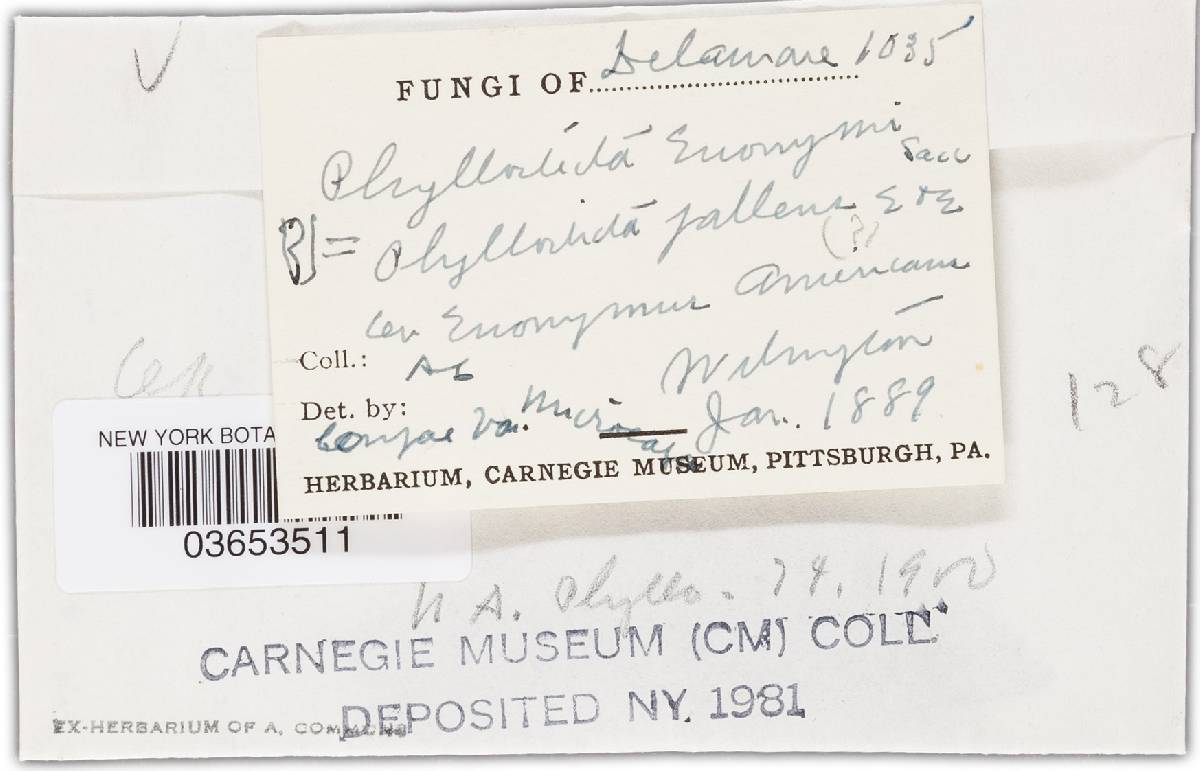 V
FUNGI OF Delaware 1035
Phyllosticta Euonymi
Sacc
[?] = Phyllosticta pallens E & E
(?)
on Euonymus Americanus
Coll.: AC
Wilmington
Det. by:
Jan. 1889
Compare var. Micro
HERBARIUM, CARNEGIE MUSEUM, PITTSBURGH, PA.
128
NEW YORK BOTA
03653511
N A. Phyllo. 74. 1900
CARNEGIE MUSEUM (CM) COLL.
DEPOSITED NY. 1981
EX-HERBARIUM OF A. COMMONS